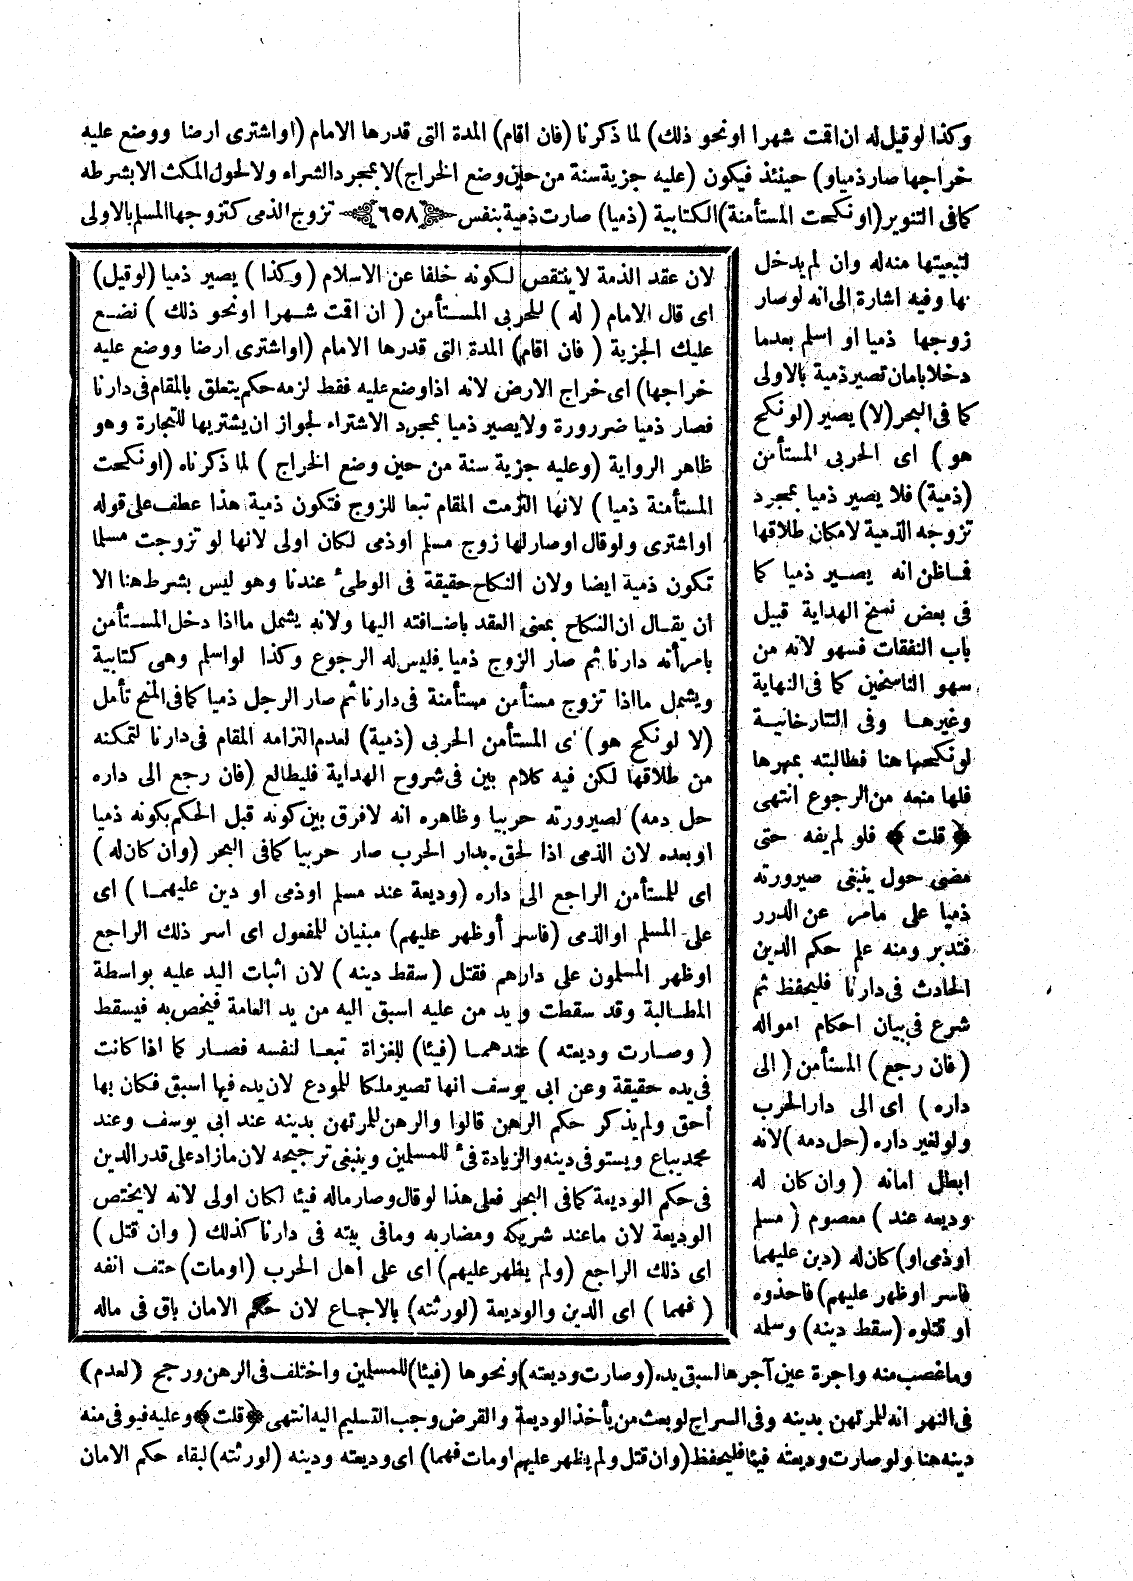 وكذا لو قيل له ان اقت شهرا او نحو ذلك) لما ذكرنا (فان اقام) المدة التى قدرها الامام (او اشترى ارضا ووضع عليه
خراجها صار ذميا و) حينئذ فيكون (عليه جزية سنة من حين وضع الخراج) لا بمجرد الشراء ولا لحول المكث الا بشرطه
كما فى التنوير (او نكحت المستأمنة) الكتابية (ذميا) صارت ذمية بنفس ﴿٦٥٨﴾ تزوج الذمى كتزوجها المسلم بالاولى
لتبعيتها منه له وان لم يدخل
بها وفيه اشارة الى انه لو صار
زوجها ذميا او اسلم بعدما
دخلا بامان تصير ذمية بالاولى
كما فى البحر (لا) يصير (لو نكح
هو) اى الحربى المستأمن
(ذمية) فلا يصير ذميا بمجرد
تزوجه الذمية لامكان طلاقها
فما ظن انه يصير ذميا كما
فى بعض نسخ الهداية قبيل
باب النفقات فسهو لانه من
سهو الناسخين كما فى النهاية
وغيرها وفى التتارخانية
لو نكحها هنا فطالبته بمهرها
فلها منعه من الرجوع انتهى
﴿قلت﴾ فلو لم يفه حتى
مضى حول ينبغى صيرورته
ذميا على مامر عن الدرر
فتدبر ومنه علم حكم الدين
الحادث فى دارنا فليحفظ ثم
شرع فى بيان احكام امواله
(فان رجع) المستأمن (الى
داره) اى الى دار الحرب
ولو لغير داره (حل دمه) لانه
ابطل امانه (وان كان له
وديعه عند) معصوم (مسلم
او ذمى او) كان له (دين عليهما
فاسر او ظهر عليهم) فاخذوه
او قتلوه (سقط دينه) وسلمه
لان عقد الذمة لا ينتقص لكونه خلفا عن الاسلام (وكذا) يصير ذميا (لو قيل)
اى قال الامام (له) للحربى المستأمن (ان اقت شهرا او نحو ذلك) نضع
عليك الجزية (فان اقام) المدة التى قدرها الامام (او اشترى ارضا ووضع عليه
خراجها) اى خراج الارض لانه اذا وضع عليه فقط لزمه حكم يتعلق بالمقام فى دارنا
فصار ذميا ضرورة ولا يصير ذميا بمجرد الاشتراء لجواز ان يشتريها للتجارة وهو
ظاهر الرواية (وعليه جزية سنة من حين وضع الخراج) لما ذكرناه (او نكحت
المستأمنة ذميا) لانها التزمت المقام تبعا للزوج فتكون ذمية هذا عطف على قوله
او اشترى ولو قال او صار لها زوج مسلم او ذمى لكان اولى لانها لو تزوجت مسلما
تكون ذمية ايضا ولان النكاح حقيقة فى الوطئ عندنا وهو ليس بشرط هنا الا
ان يقال ان النكاح بمعنى العقد باضافته اليها ولانه يشمل ما اذا دخل المستأمن
بامرأته دارنا ثم صار الزوج ذميا فليس له الرجوع وكذا لو اسلم وهى كتابية
ويشمل ما اذا تزوج مستأمن مستأمنة فى دارنا ثم صار الرجل ذميا كما فى المنح تأمل
(لا لو نكح هو) اى المستأمن الحربى (ذمية) لعدم التزامه المقام فى دارنا لتمكنه
من طلاقها لكن فيه كلام بين فى شروح الهداية فليطالع (فان رجع الى داره
حل دمه) لصيرورته حربيا وظاهره انه لا فرق بين كونه قبل الحكم بكونه ذميا
او بعده لان الذمى اذا لحق بدار الحرب صار حربيا كما فى البحر (وان كان له)
اى للمستأمن الراجع الى داره (وديعة عند مسلم او ذمى او دين عليهما) اى
على المسلم او الذمى (فاسر أو ظهر عليهم) مبنيان للمفعول اى اسر ذلك الراجع
او ظهر المسلمون على دارهم فقتل (سقط دينه) لان اثبات اليد عليه بواسطة
المطالبة وقد سقطت ويد من عليه اسبق اليه من يد العامة فيختص به فيسقط
(وصارت وديعته) عندهما (فيئا) للغزاة تبعا لنفسه فصار كما اذا كانت
فى يده حقيقة وعن ابى يوسف انها تصير ملكا للمودع لان يده فيها اسبق فكان بها
أحق ولم يذكر حكم الرهن قالوا والرهن للمرتهن بدينه عند ابى يوسف وعند
محمد يباع ويستوفى دينه والزيادة فىء للمسلمين وينبغى ترجيحه لان مازاد على قدر الدين
فى حكم الوديعة كما فى البحر فعلى هذا لو قال وصار ماله فيئا لكان اولى لانه لا يختص
الوديعة لان ماعند شريكه ومضاربه ومافى بيته فى دارنا كذلك (وان قتل)
اى ذلك الراجع (ولم يظهر عليهم) اى على اهل الحرب (او مات) حتف انفه
(فهما) اى الدين والوديعة (لورثته) بالاجماع لان حكم الامان باق فى ماله
وما غصب منه واجرة عين آجرها لسبق يده (وصارت وديعته) ونحوها (فيئا) للمسلمين واختلف فى الرهن ورجح (لعدم)
فى النهر انه للمرتهن بدينه وفى السراج لو بعث من يأخذ الوديعة والقرض وجب التسليم اليه انتهى ﴿قلت﴾ وعليه فيوفى منه
دينه هنا ولو صارت وديعته فيئا فليحفظ (وان قتل ولم يظهر عليهم او مات فهما) اى وديعته ودينه (لورثته) لبقاء حكم الامان